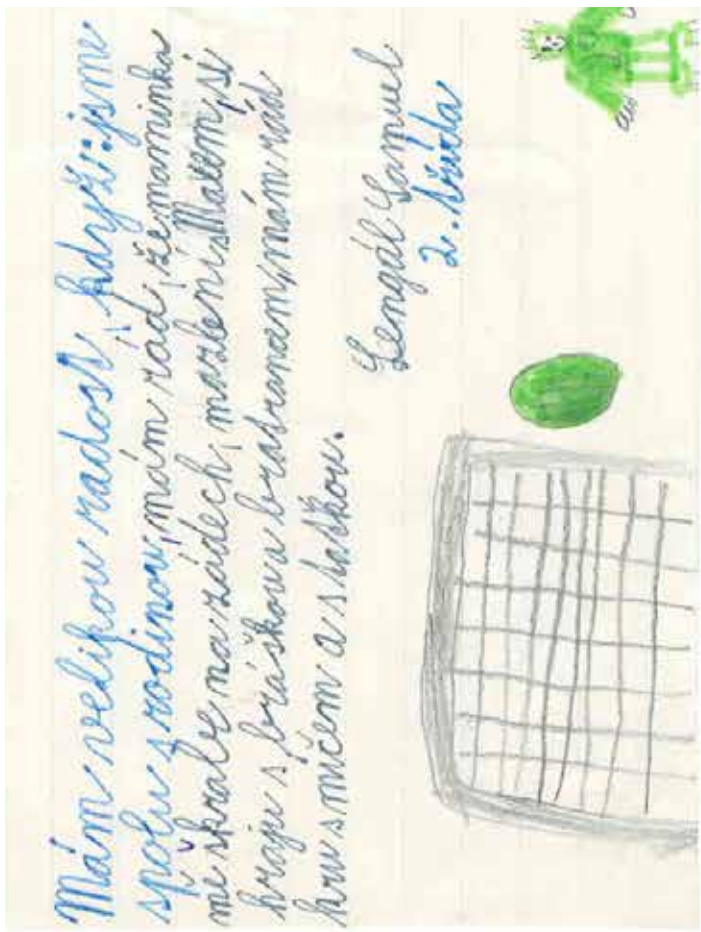 Mám velikou radost, když jsme
spolu s rodinou, mám rád, že maminka
mě škrabe na zádech, mazlení s Matem, si
hraju s bráškou a bratranem, mám rád
hru s míčem a s taškou.
Lengál Samuel
2. třída